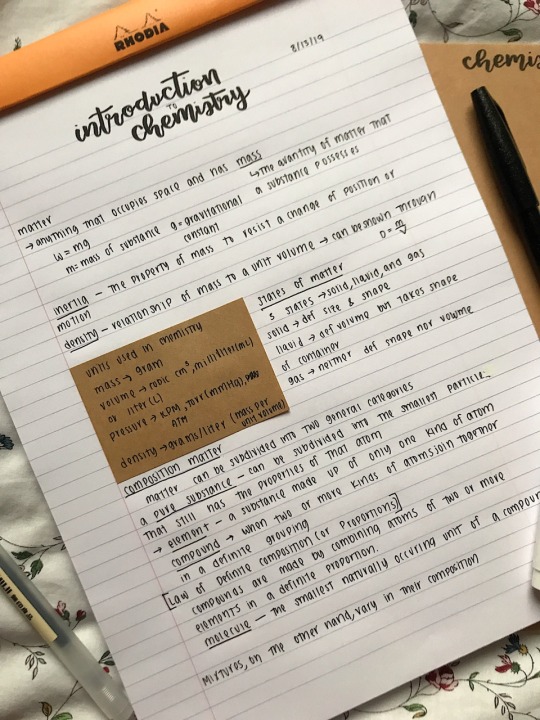 RHODIA
8/13/19
introduction
TO
chemistry
chemis
matter
→ anything that occupies space and has mass
↳ the quantity of matter that
a substance possesses
W = mg
m = mass of substance g = gravitational
constant
inertia – the property of mass to resist a change of position or
motion
density – relationship of mass to a unit volume → can be shown through
D = m/V
states of matter
3 states → solid, liquid, and gas
solid → def size & shape
liquid → def volume but takes shape
of container
gas → neither def shape nor volume
units used in chemistry
mass → gram
volume → cubic cm³, milliliter (mL)
or liter (L)
pressure → KPA, Torr (mmHg),
ATM
density → grams/liter (mass per
unit volume)
composition matter
matter can be subdivided into two general categories
a pure substance – can be subdivided into the smallest particle
that still has the properties of that atom
→ element – a substance made up of only one kind of atom
compound → when two or more kinds of atoms join together
in a definite grouping
[Law of Definite Composition (or Proportions)]
compounds are made by combining atoms of two or more
elements in a definite proportion.
molecule – the smallest naturally occuring unit of a compound
mixtures, on the other hand, vary in their composition